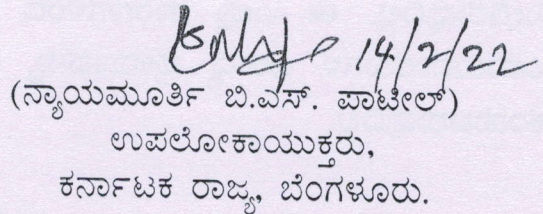 14/2/22
(ನ್ಯಾಯಮೂರ್ತಿ ಬಿ.ಎಸ್. ಪಾಟೀಲ್)
ಉಪಲೋಕಾಯುಕ್ತರು,
ಕರ್ನಾಟಕ ರಾಜ್ಯ, ಬೆಂಗಳೂರು.